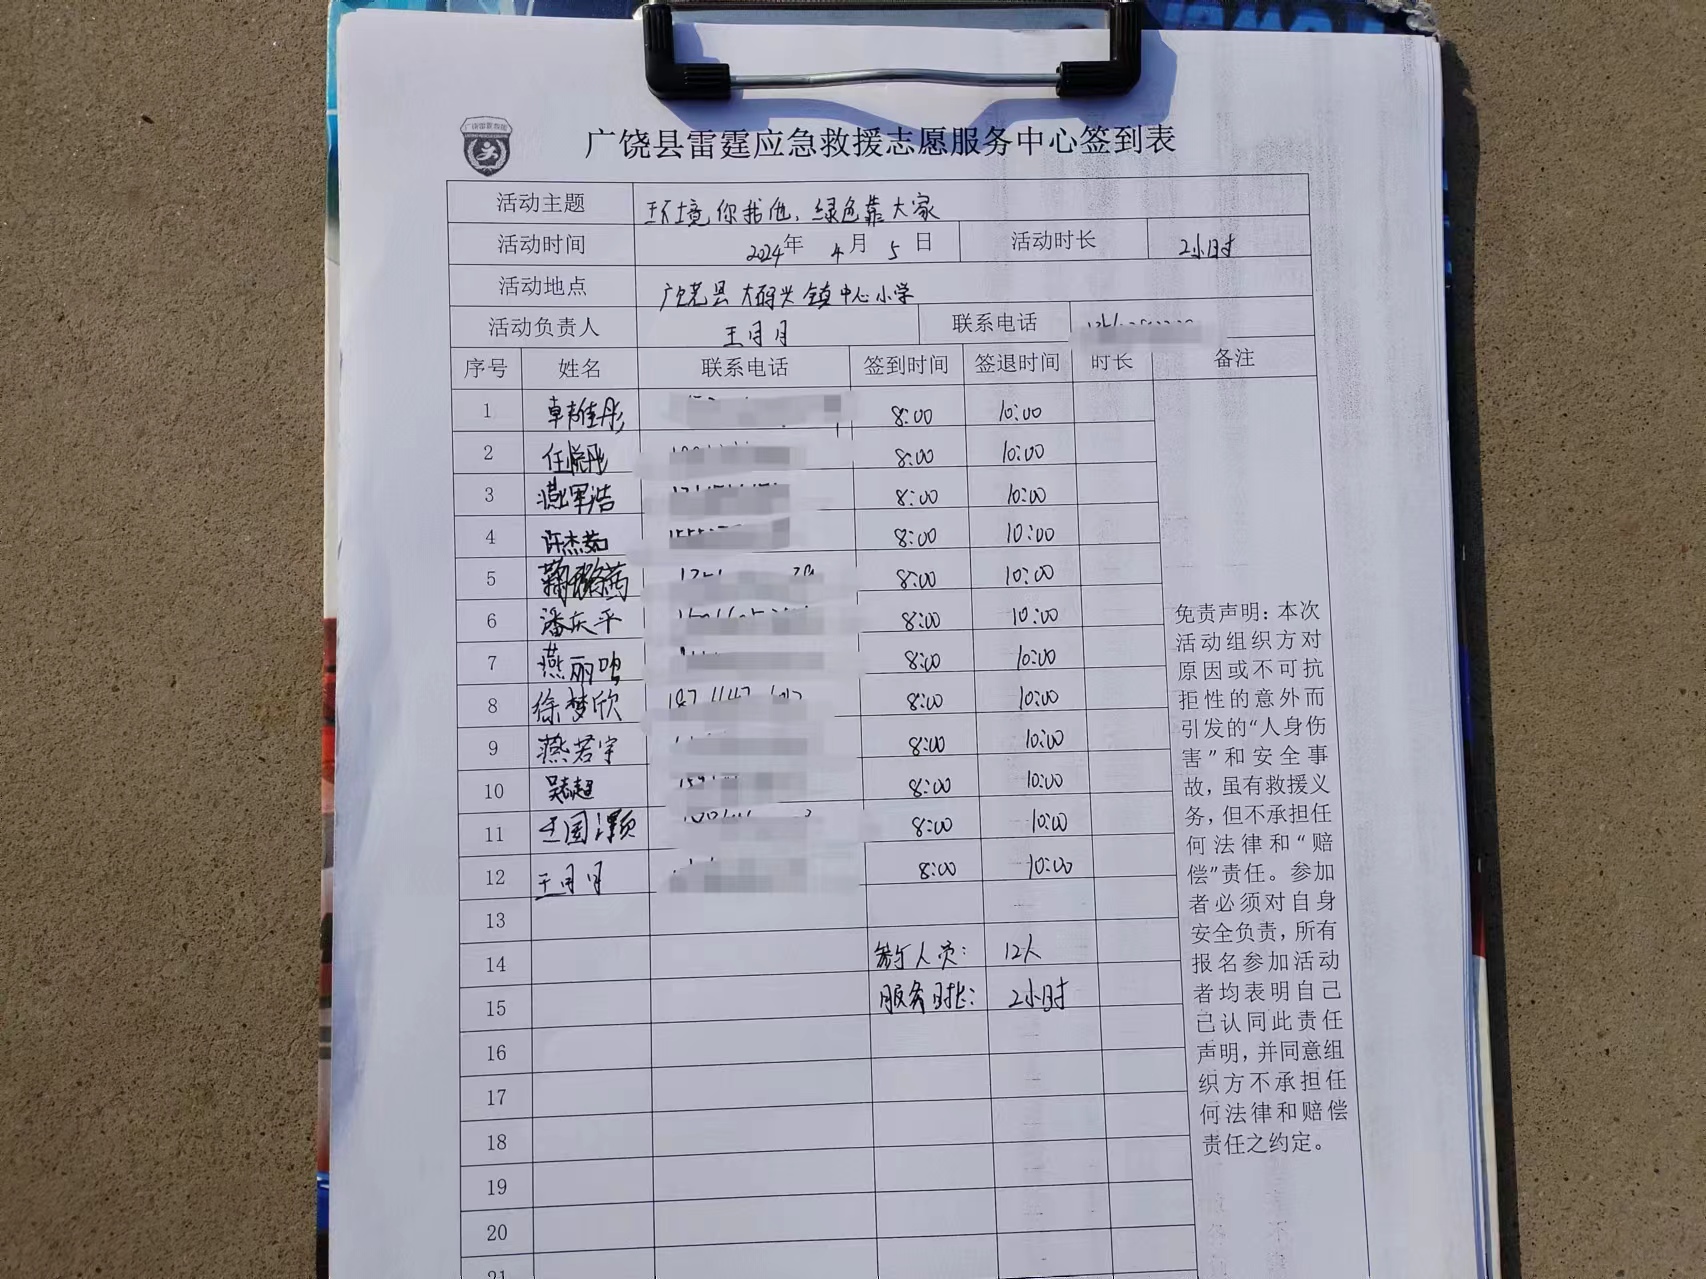 广饶县雷霆应急救援志愿服务中心签到表
活动主题 环境你我他，绿色靠大家
活动时间 2024年 4月 5日 活动时长 2小时
活动地点 广饶县大码头镇中心小学
活动负责人 王月月 联系电话
序号 姓名 联系电话 签到时间 签退时间 时长 备注
1 8:00 10:00
2 任悦彤 8:00 10:00
3 燕军浩 8:00 10:00
4 许杰茹 8:00 10:00
5 8:00 10:00
6 潘庆平 8:00 10:00
7 燕丽 8:00 10:00
8 徐梦欣 8:00 10:00
9 燕若宇 8:00 10:00
10 吴志超 8:00 10:00
11 王国 8:00 10:00
12 王月月 8:00 10:00
13
14 人员： 12人
15 服务时长： 2小时
16
17
18
19
20
21
免责声明：本次
活动组织方对
原因或不可抗
拒性的意外而
引发的“人身伤
害”和安全事
故，虽有救援义
务，但不承担任
何法律和“赔
偿”责任。参加
者必须对自身
安全负责，所有
报名参加活动
者均表明自己
已认同此责任
声明，并同意组
织方不承担任
何法律和赔偿
责任之约定。